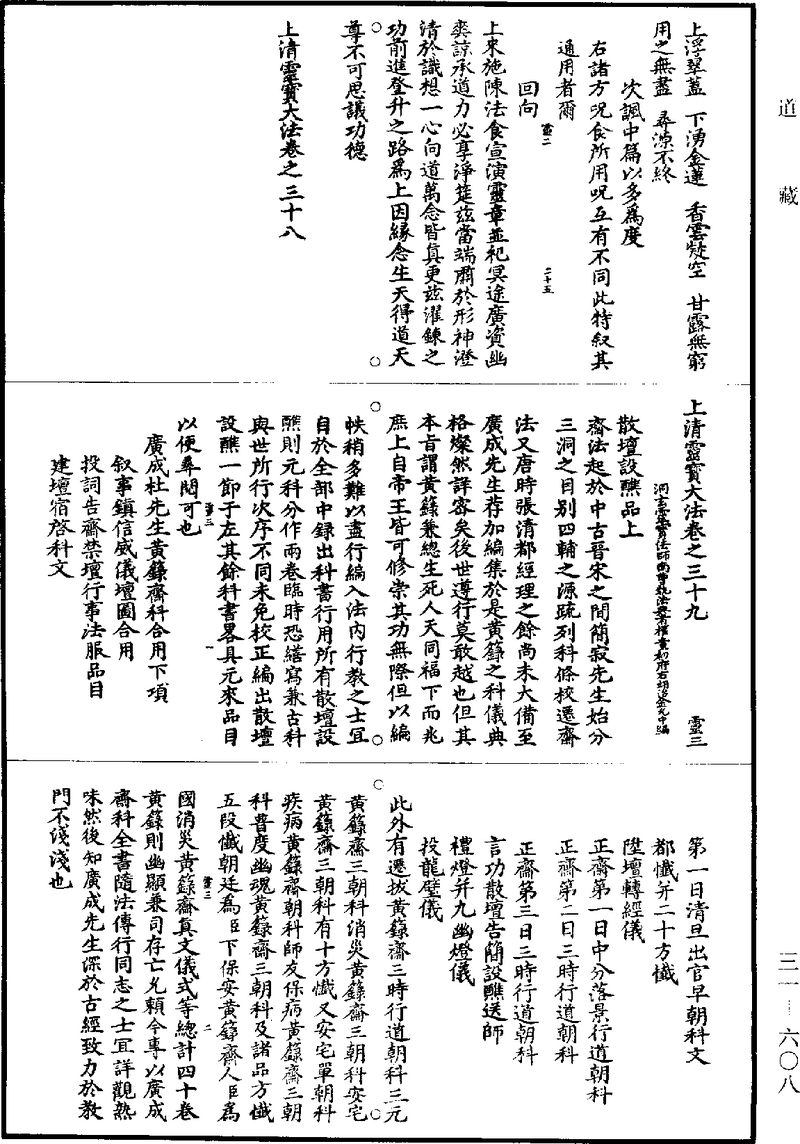 道藏
上浮翠蓋　下湧金蓮　香雲礙空　甘露無窮
用之無盡　尋源不終
次諷中篇以多爲度
右諸方呪食所用呪互有不同此特叙其
通用者爾
靈二
二十五
回向
上來施陳法食宣演靈章並祀冥途廣資幽
爽諒承道力必享淨筵茲當端肅於形神澄
清於識想一心向道萬念皆真更茲濯鍊之
功前進登升之路爲上因緣念生天得道天
尊不可思議功德
上清靈寶大法卷之三十八
上清靈寶大法卷之三十九
靈三
散壇設醮品上
齋法起於中古晉宋之間簡寂先生始分
三洞之目別四輔之源疏列科條校遷齋
法又唐時張清都經理之餘尚未大備至
廣成先生荐加編集於是黃籙之科儀典
格燦然詳密矣後世遵行莫敢越也但其
本旨謂黃籙兼總生死人天同福下而兆
庶上自帝王皆可修崇其功無際但以編
帙稍多難以盡行編入法內行教之士宜
自於全部中録出科書行用所有散壇設
醮則元科分作兩卷臨時恐繕寫兼古科
與世所行次序不同未免校正編出散壇
設醮一節于左其餘科書畧具元來品目
以便尋閱可也
靈三
一
廣成杜先生黃籙齋科合用下項
叙事鎮信威儀壇圖合用
投詞告齋禁壇行事法服品目
建壇宿啓科文
第一日清旦出官早朝科文
都懺并二十方懺
陞壇轉經儀
正齋第一日中分落景行道朝科
正齋第二日三時行道朝科
正齋第三日三時行道朝科
言功散壇告簡設醮送師
禮燈并九幽燈儀
投龍璧儀
此外有遷拔黃籙齋三時行道朝科三元
黃籙齋三朝科消災黃籙齋三朝科安宅
黃籙齋三朝科有十方懺又安宅單朝科
疾病黃籙齋朝科師友保病黃籙齋三朝
科普度幽魂黃籙齋三朝科及諸品方懺
五段懺朝廷爲臣下保安黃籙齋人臣爲
國消災黃籙齋真文儀式等總計四十卷
靈三
二
黃籙則幽顯兼司存亡允賴今專以廣成
齋科全書隨法傳行同志之士宜詳觀熟
味然後知廣成先生深於古經致力於教
門不淺淺也
三一–六〇八